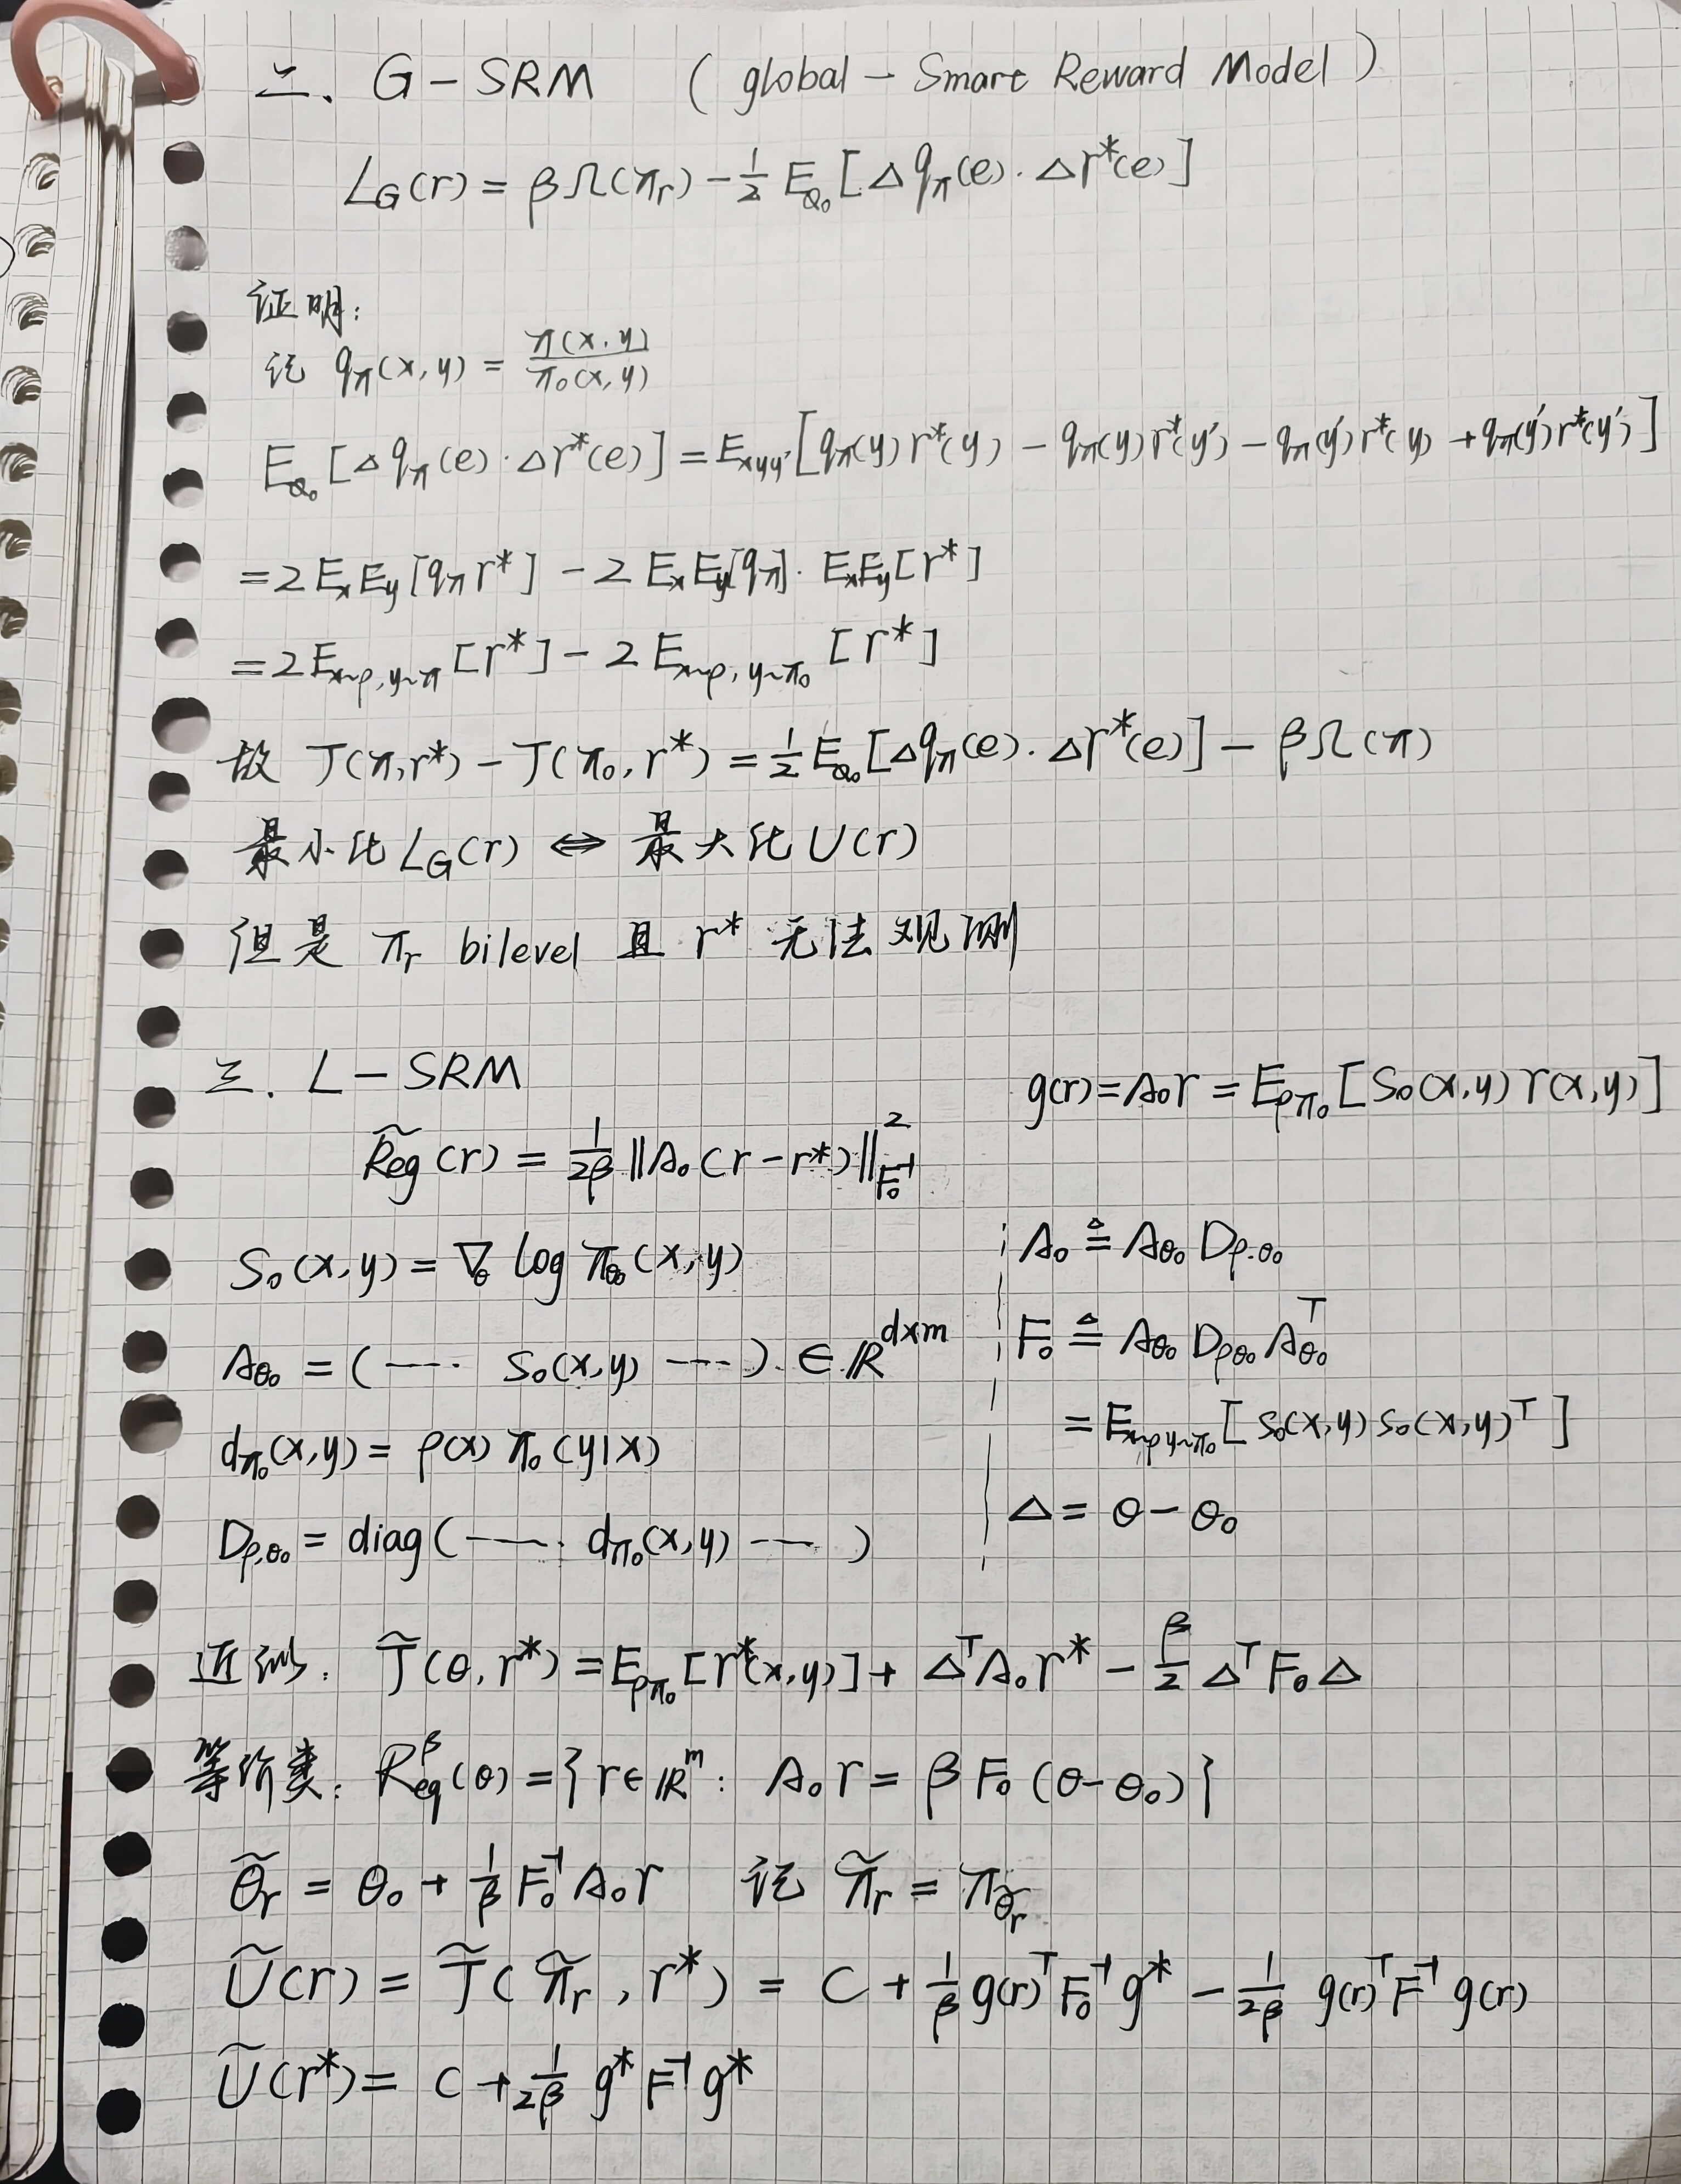 二、G-SRM (global - Smart Reward Model)
L_G(r) = βΩ(π_r) - 1/2 E_{Q_0}[Δq_π(e)·Δr*(e)]
证明:
记 q_π(x,y) = π(x,y)/π_0(x,y)
E_{Q_0}[Δq_π(e)·Δr*(e)] = E_{xyy'}[q_π(y)r*(y) - q_π(y)r*(y') - q_π(y')r*(y) + q_π(y')r*(y')]
= 2E_xE_y[q_π r*] - 2E_xE_y[q_π]·E_xE_y[r*]
= 2E_{x~ρ,y~π}[r*] - 2E_{x~ρ,y~π_0}[r*]
故 J(π,r*) - J(π_0,r*) = 1/2 E_{Q_0}[Δq_π(e)·Δr*(e)] - βΩ(π)
最小化 L_G(r) ⇔ 最大化 U(r)
但是 π_r bilevel 且 r* 无法观测
三. L-SRM
g(r) = A_0r = E_{ρπ_0}[S_0(x,y)r(x,y)]
R̃eg(r) = 1/2β ‖A_0(r-r*)‖²_{F_0^{-1}}
S_0(x,y) = ∇_θ log π_{θ_0}(x,y)
A_{θ_0} = (—·· S_0(x,y) —··) ∈ ℝ^{d×m}
d_{π_0}(x,y) = ρ(x)π_0(y|x)
D_{ρ,θ_0} = diag(—·· d_{π_0}(x,y) —··)
A_0 ≜ A_{θ_0}D_{ρ·θ_0}
F_0 ≜ A_{θ_0}D_{ρθ_0}A_{θ_0}^T
= E_{x~ρ y~π_0}[S_0(x,y)S_0(x,y)^T]
Δ = θ - θ_0
近似: J̃(θ,r*) = E_{ρπ_0}[r*(x,y)] + Δ^T A_0r* - β/2 Δ^T F_0Δ
等价类: R_{eq}^β(θ) = {r∈ℝ^m: A_0r = βF_0(θ-θ_0)}
θ̃_r = θ_0 + 1/β F_0^{-1}A_0r 记 π̃_r = π_{θ̃_r}
Ũ(r) = J̃(π̃_r, r*) = C + 1/β g(r)^T F_0^{-1} g* - 1/2β g(r)^T F^{-1} g(r)
Ũ(r*) = C + 1/2β g* F^{-1} g*